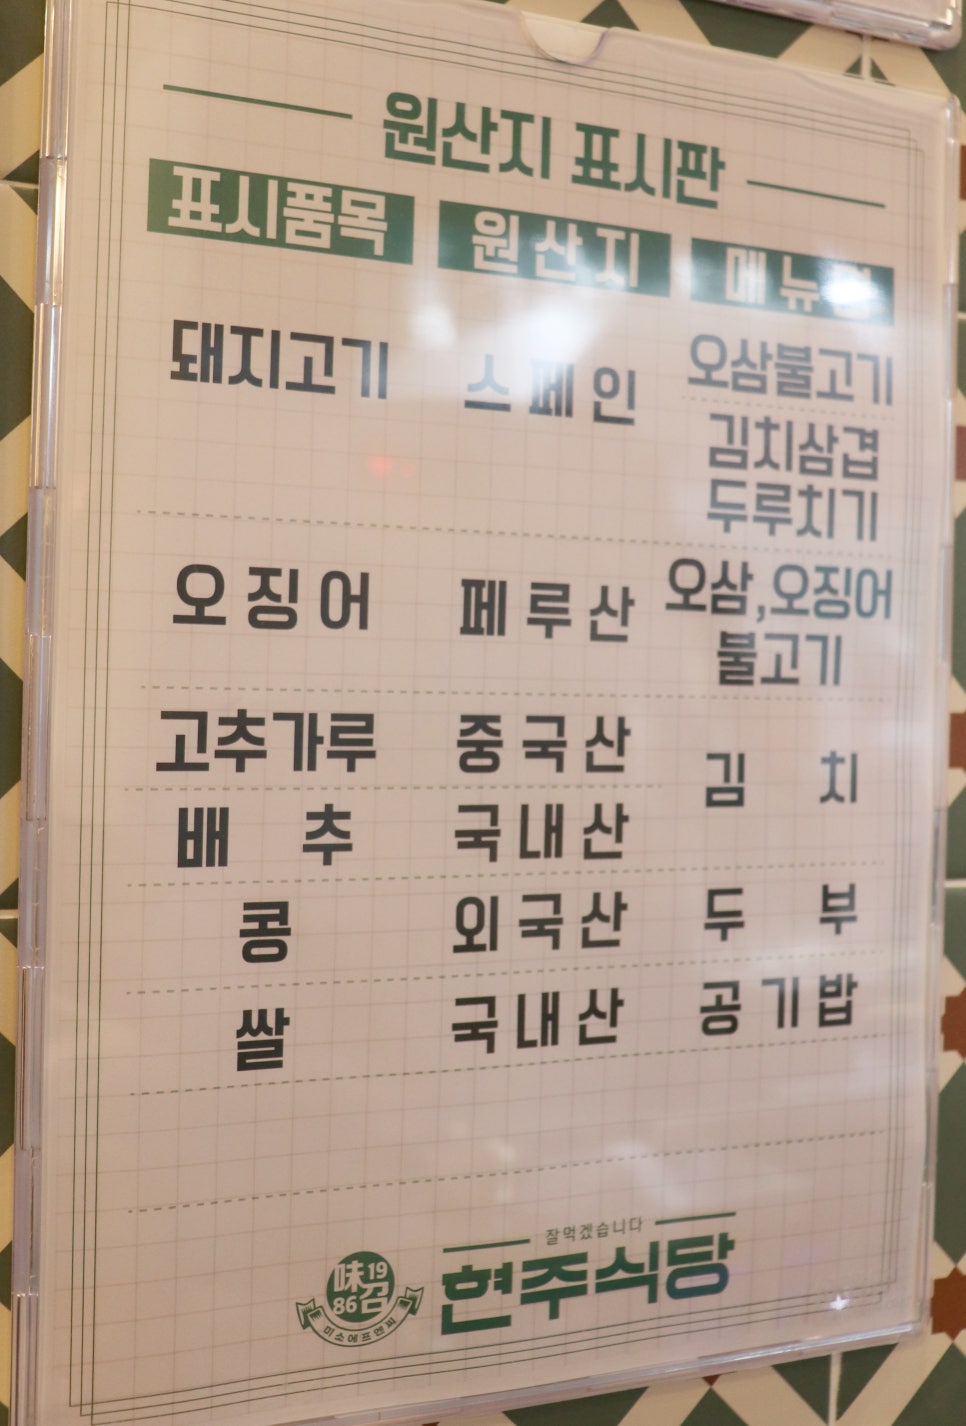 원산지 표시판
표시품목 원산지 메뉴명
돼지고기 스페인 오삼불고기
김치삼겹
두루치기
오징어 페루산 오삼,오징어
불고기
고추가루 중국산
김 치
배 추 국내산
콩 외국산 두 부
쌀 국내산 공기밥
잘먹겠습니다
현주식당
味 19
86 召
미소에프엔씨